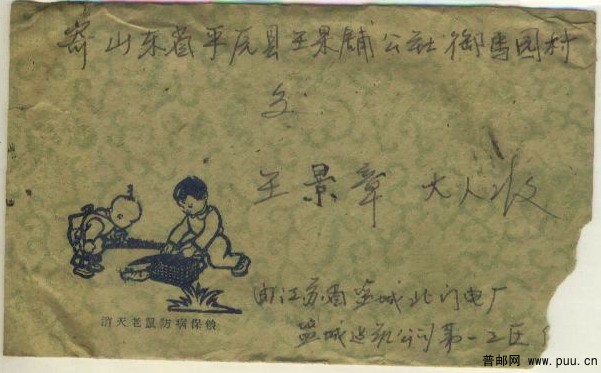 寄山东省平原县王果铺公社御馬园村
交:
王景章 大人收
消灭老鼠防病保粮
由江苏省盐城北门电厂
盐城建筑公司第一工区
普邮网 www.puu.cn